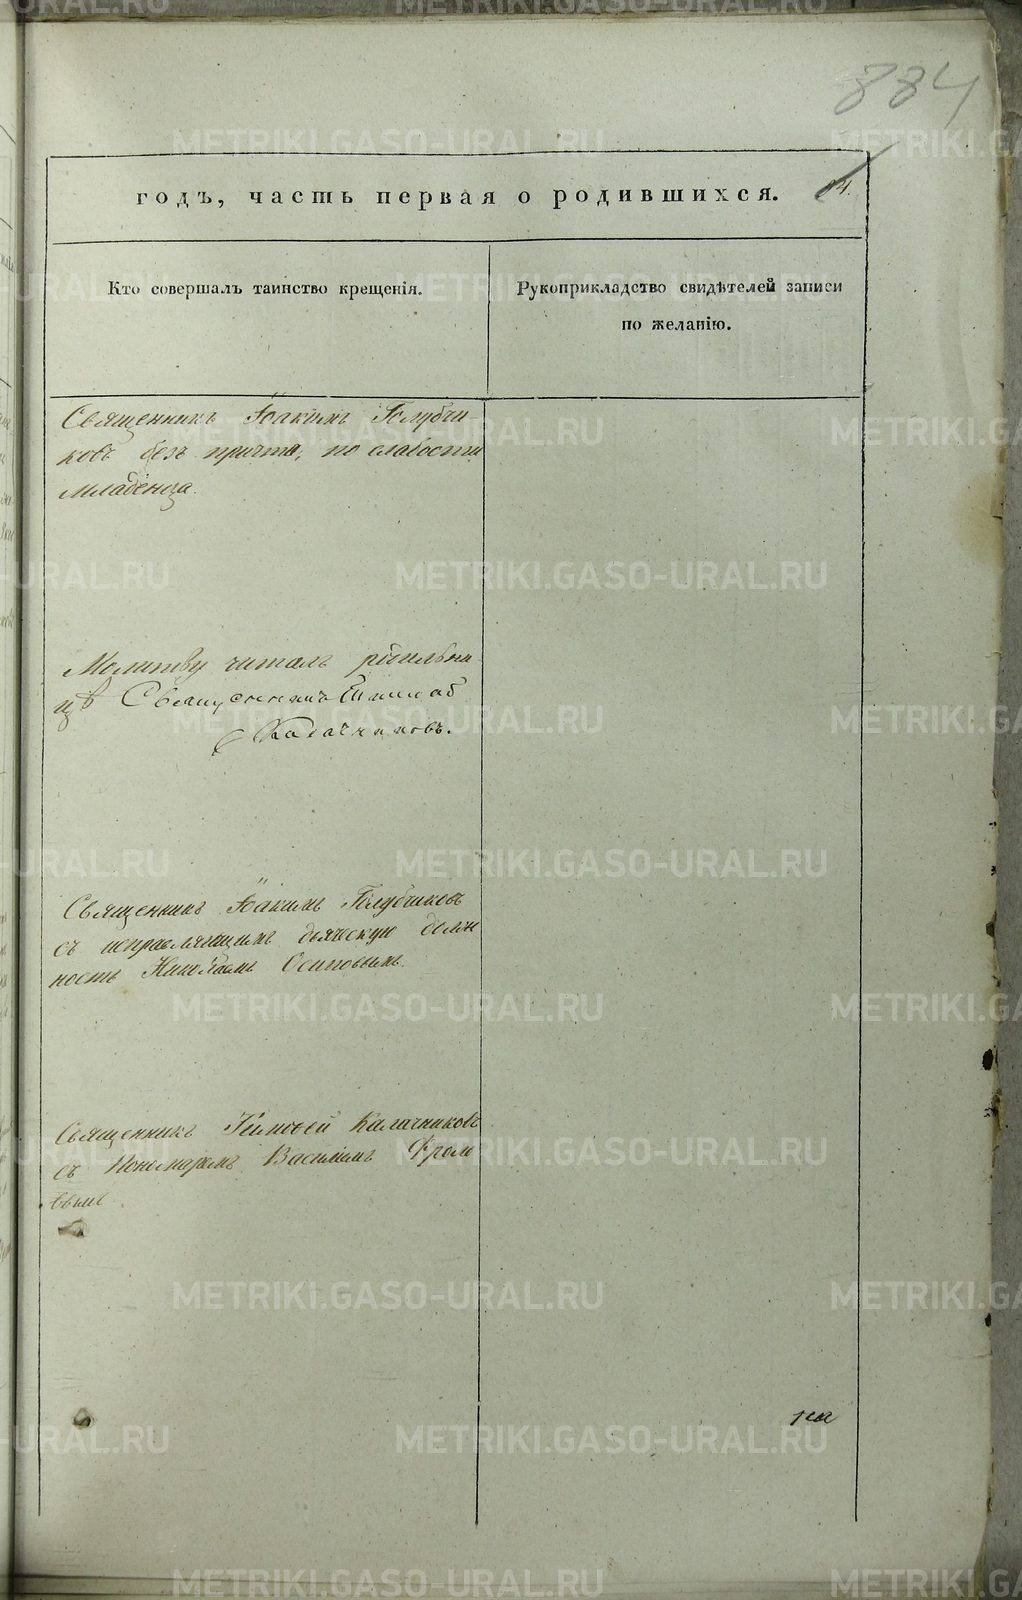 884
14.
годъ, часть первая о родившихся.
Кто совершалъ таинство крещенія.
Рукоприкладство свидѣтелей записи
по желанію.
Священникъ Іоакимъ Голубчи-
ковъ безъ причта, по слабости
Младенца.
Молитву читалъ рѣильни-
цѣ Священникъ
Калачниковъ.
Священникъ Іоакимъ Голубчиковъ
съ исправляющимъ дьяческую долж
ность Николаемъ Осиповымъ.
Священникъ Тимоѳей Калачниковъ
съ Пономаремъ Василіемъ Фроло
вымъ.
METRIKI.GASO-URAL.RU